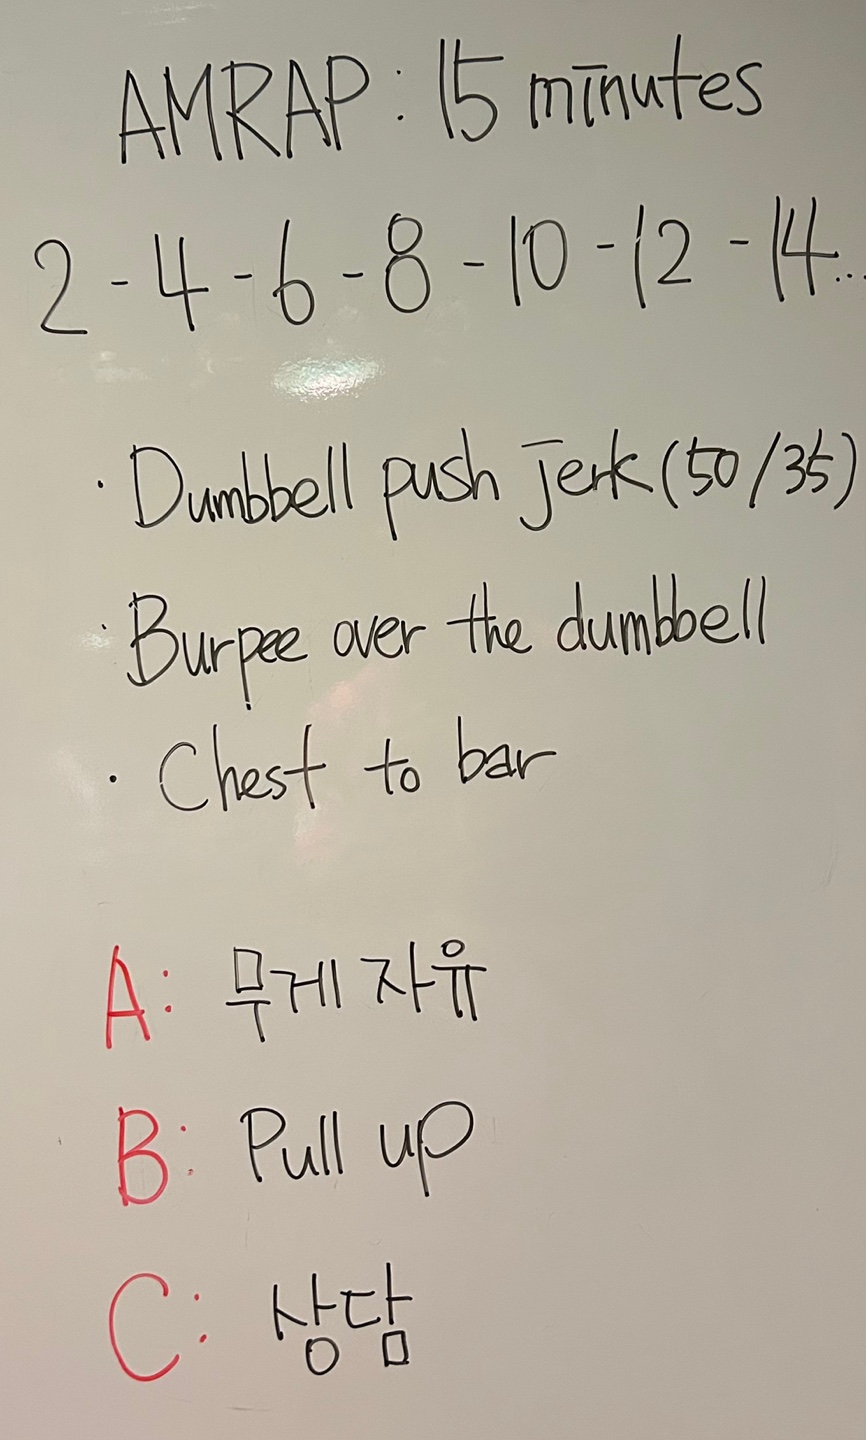 AMRAP: 15 minutes
2 - 4 - 6 - 8 - 10 - 12 - 14...
· Dumbbell push jerk (50/35)
· Burpee over the dumbbell
· Chest to bar
A: 무게 자유
B: Pull up
C: 상담